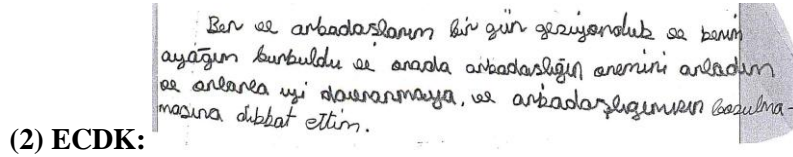 Ben ve arkadaşlarım bir gün geziyorduk ve benim
ayağım burkuldu ve orada arkadaşlığın önemini anladım
ve onlarla iyi davranmaya, ve arkadaşlığımızın bozulma-
masına dikkat ettim.
(2) ECDK: